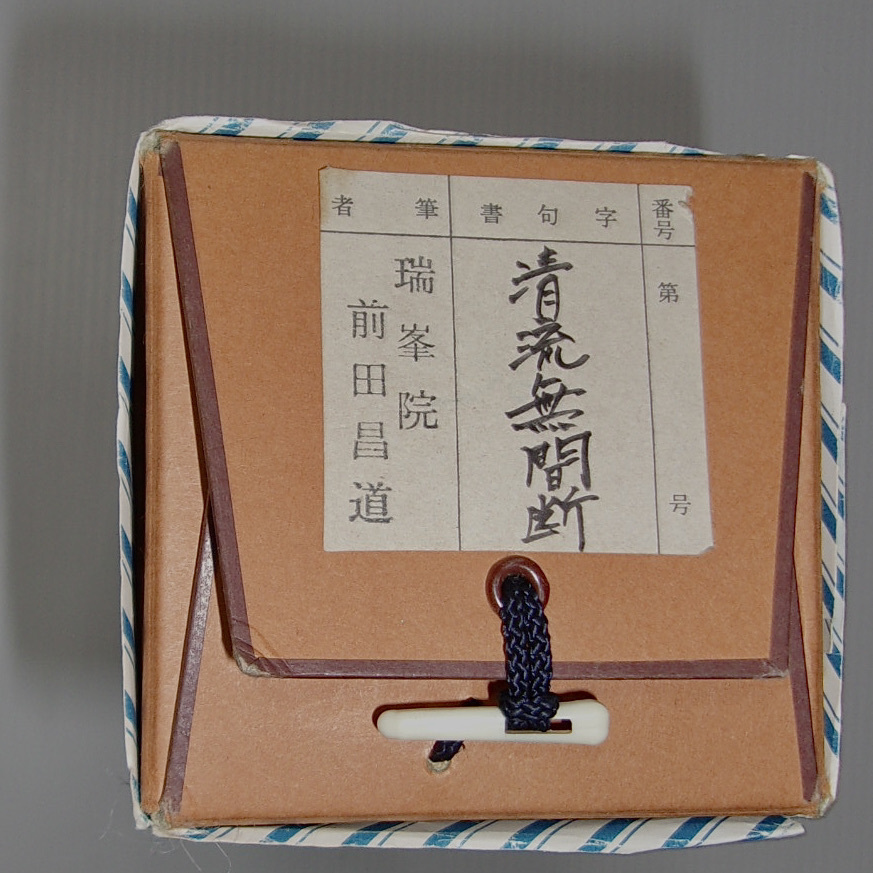 番号
第 号
字句書
清流無間断
筆者
瑞峯院
前田昌道